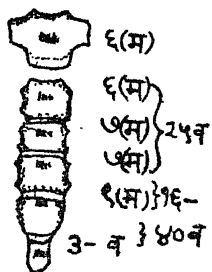 ६(म)
६(म)
७(म) } २५व
७(म)
९(म) } १६-
३- व } ४०व